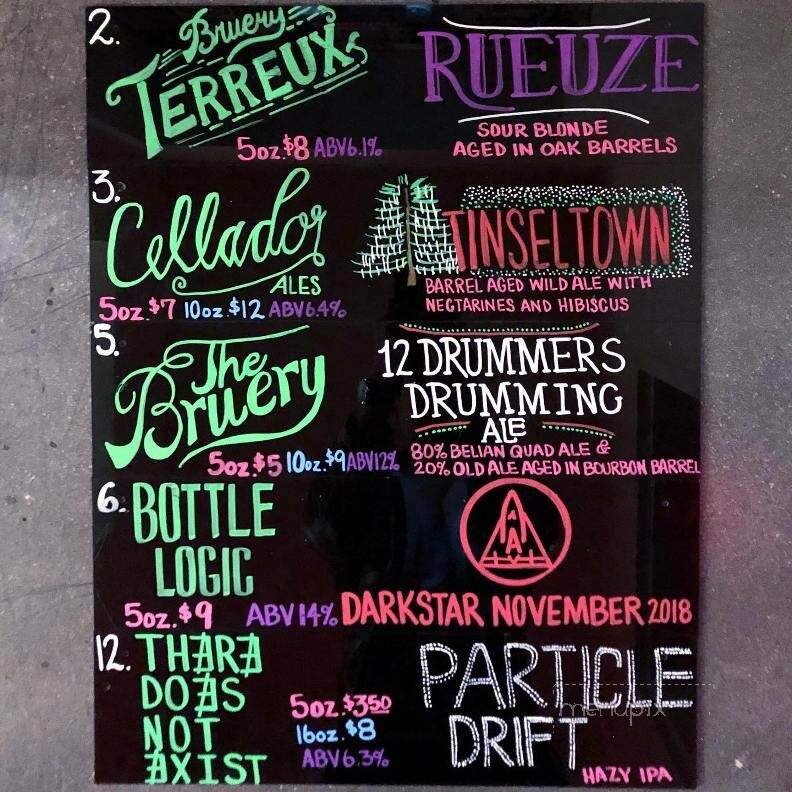 2.
Bruery
TERREUX
RUEUZE
SOUR BLONDE
AGED IN OAK BARRELS
5oz. $8 ABV 6.1%
3.
Cellador
ALES
TINSELTOWN
BARREL AGED WILD ALE WITH
NECTARINES AND HIBISCUS
5oz. $7 10oz. $12 ABV 6.4%
5.
The
Bruery
12 DRUMMERS
DRUMMING
ALE
80% BELIAN QUAD ALE &
20% OLD ALE AGED IN BOURBON BARREL
5oz $5 10oz. $9 ABV 12%
6.
BOTTLE
LOGIC
5oz. $9 ABV 14%
DARKSTAR NOVEMBER 2018
12.
THƎRƎ
DOƎS
NOT
ƎXIST
5oz. $3.50
16oz. $8
ABV 6.3%
PARTICLE
DRIFT
HAZY IPA
menupix